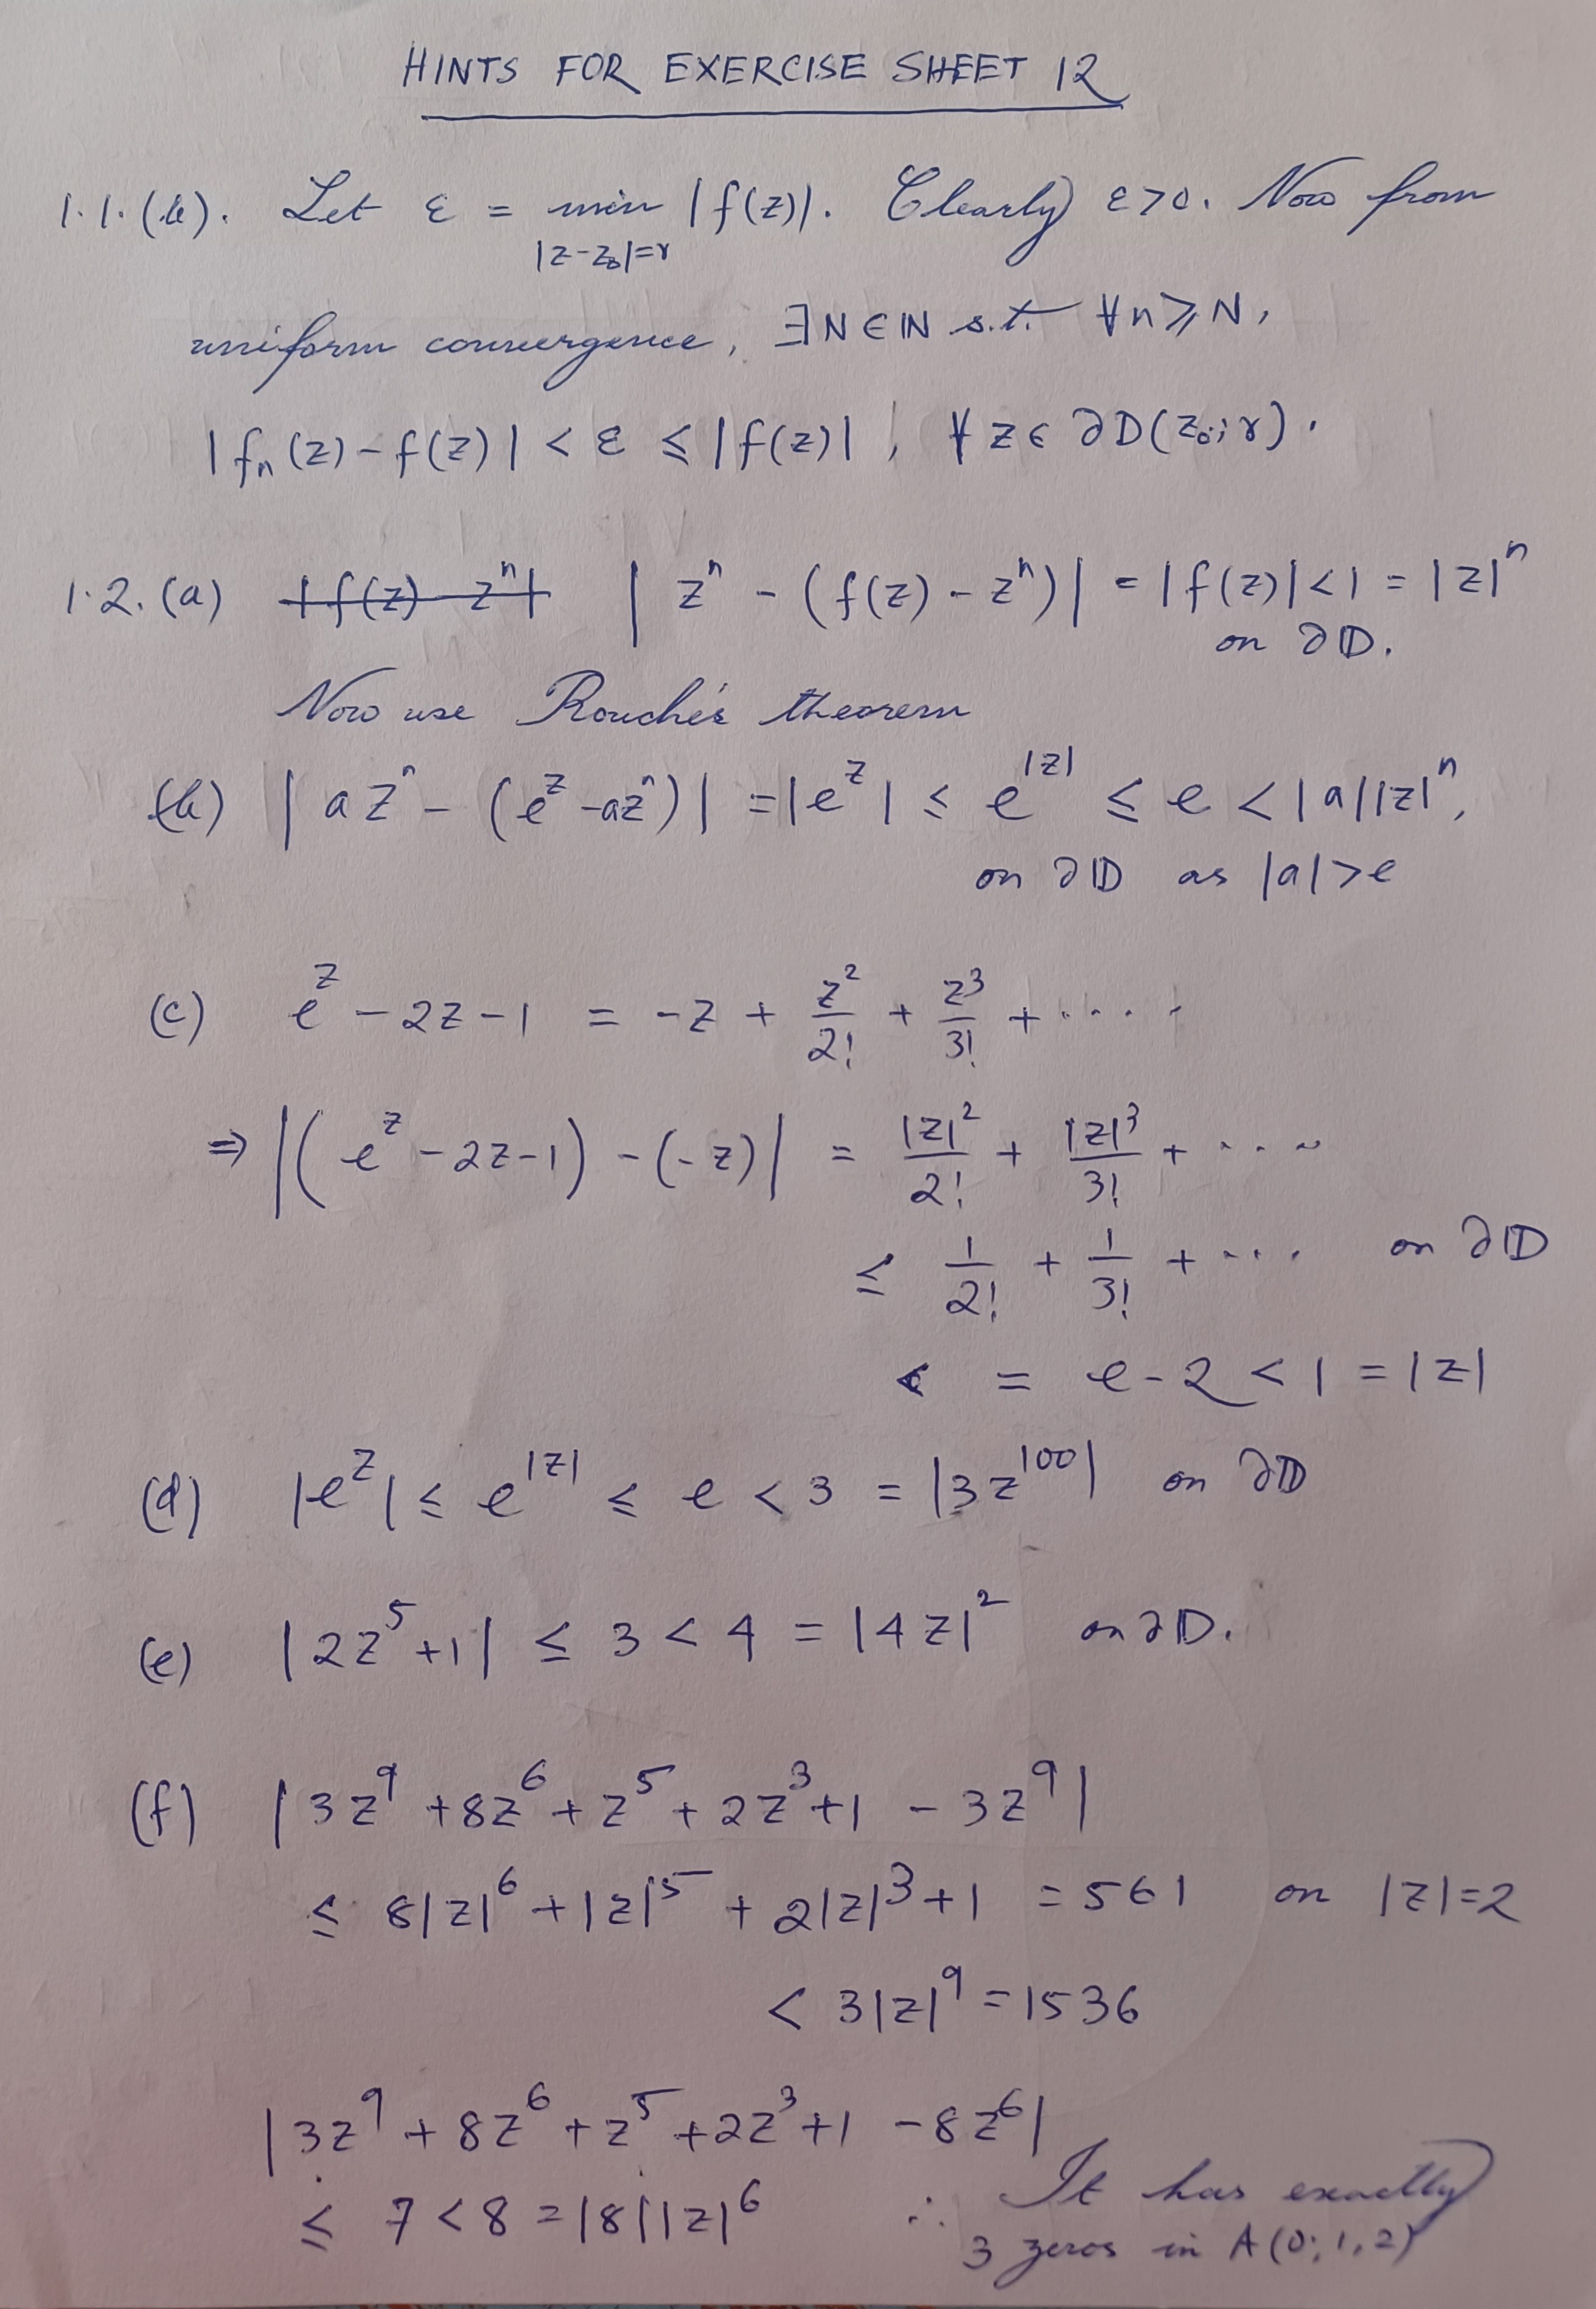 HINTS FOR EXERCISE SHEET 12
1.1.(b). Let ε = min |f(z)|. Clearly ε>0. Now from
|z-z₀|=r
uniform convergence, ∃N∈ℕ s.t. ∀n≥N,
|fₙ(z)-f(z)| < ε ≤ |f(z)|, ∀ z∈ ∂D(z₀;r).
1.2.(a) |f(z)-zⁿ| | zⁿ - (f(z)-zⁿ)| = |f(z)|<1 = |z|ⁿ
on ∂𝔻.
Now use Rouché's theorem
(b) | azⁿ - (e^z-azⁿ)| = |e^z| ≤ e^|z| ≤ e < |a||z|ⁿ,
on ∂𝔻 as |a|>e
(c) e^z - 2z - 1 = -z + z²/2! + z³/3! + ....
⇒ |(e^z - 2z-1) - (-z)| = |z|²/2! + |z|³/3! + ...
≤ 1/2! + 1/3! + ... on ∂𝔻
= e-2 < 1 = |z|
(d) |e^z| ≤ e^|z| ≤ e < 3 = |3z¹⁰⁰| on ∂𝔻
(e) |2z⁵+1| ≤ 3 < 4 = |4z|² on ∂𝔻.
(f) |3z⁹ + 8z⁶ + z⁵ + 2z³ + 1 - 3z⁹|
≤ 8|z|⁶ + |z|⁵ + 2|z|³ + 1 = 561 on |z|=2
< 3|z|⁹ = 1536
|3z⁹ + 8z⁶ + z⁵ + 2z³ + 1 - 8z⁶|
≤ 7 < 8 = |8||z|⁶ ∴ It has exactly
3 zeros in A(0;1,2)